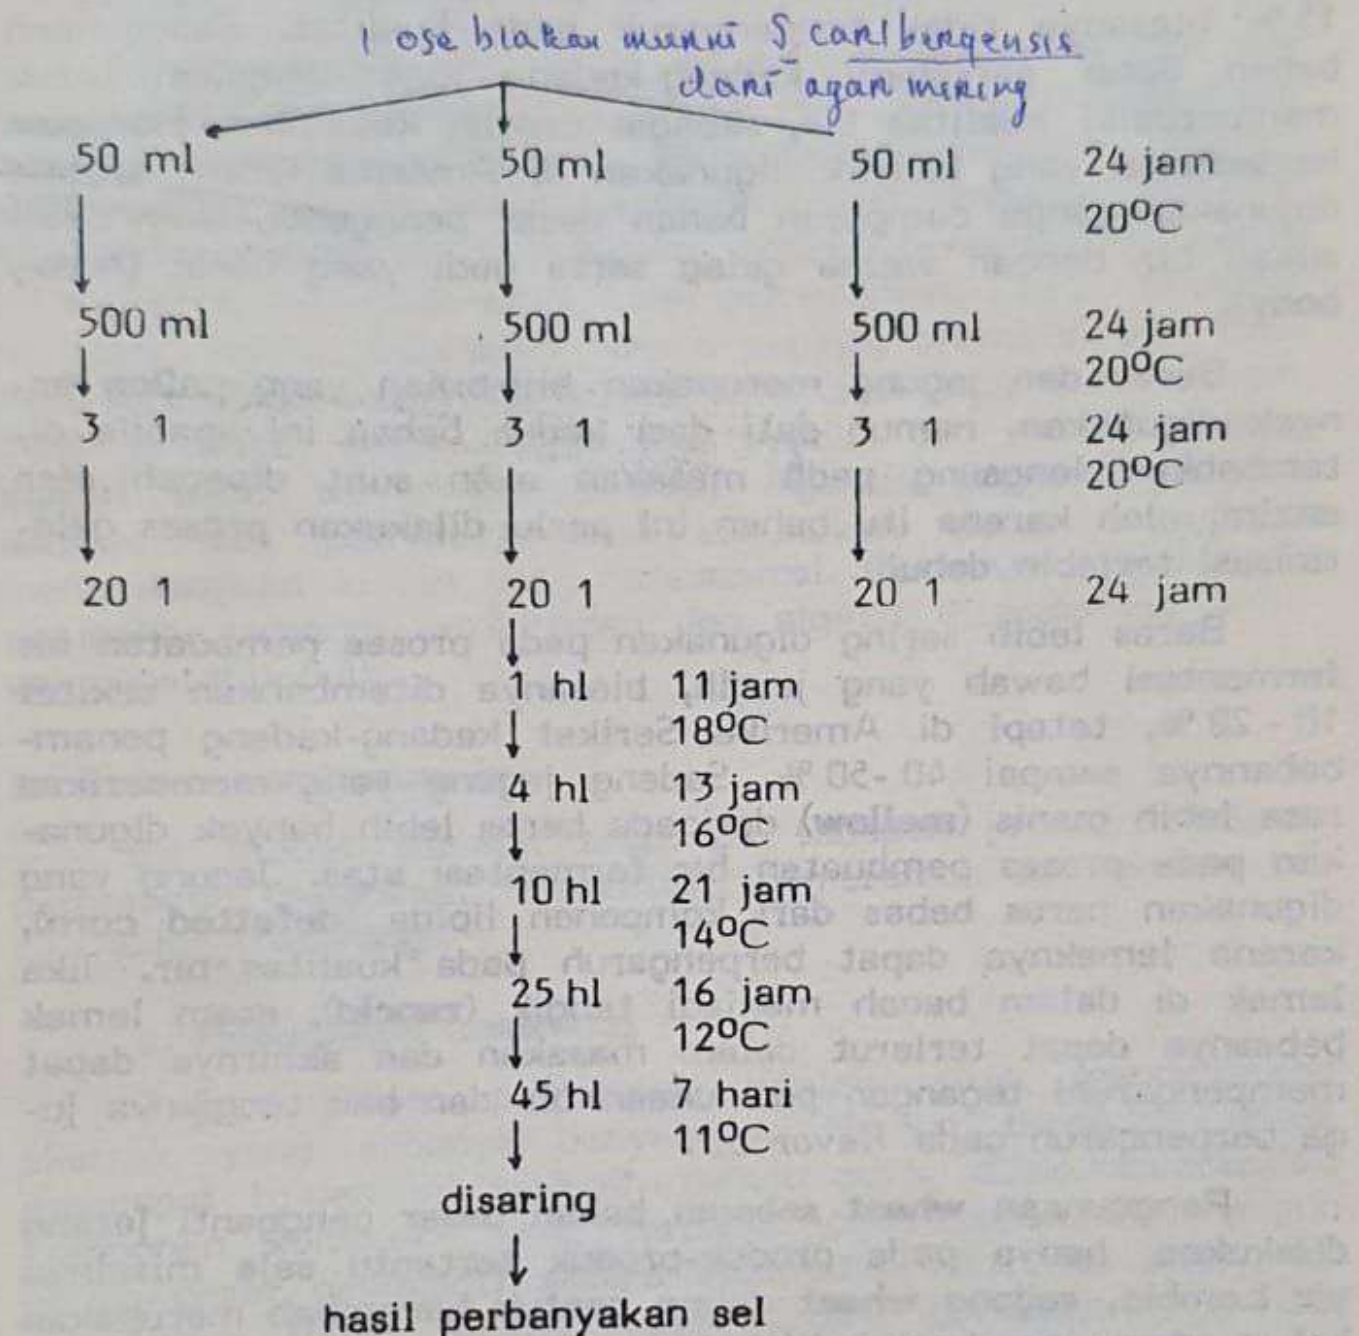 1 ose biakan murni S carlbergensis
dari agar miring
50 ml 50 ml 50 ml 24 jam
20°C
500 ml 500 ml 500 ml 24 jam
20°C
3 1 3 1 3 1 24 jam
20°C
20 1 20 1 20 1 24 jam
1 hl 11 jam
18°C
4 hl 13 jam
16°C
10 hl 21 jam
14°C
25 hl 16 jam
12°C
45 hl 7 hari
11°C
disaring
hasil perbanyakan sel